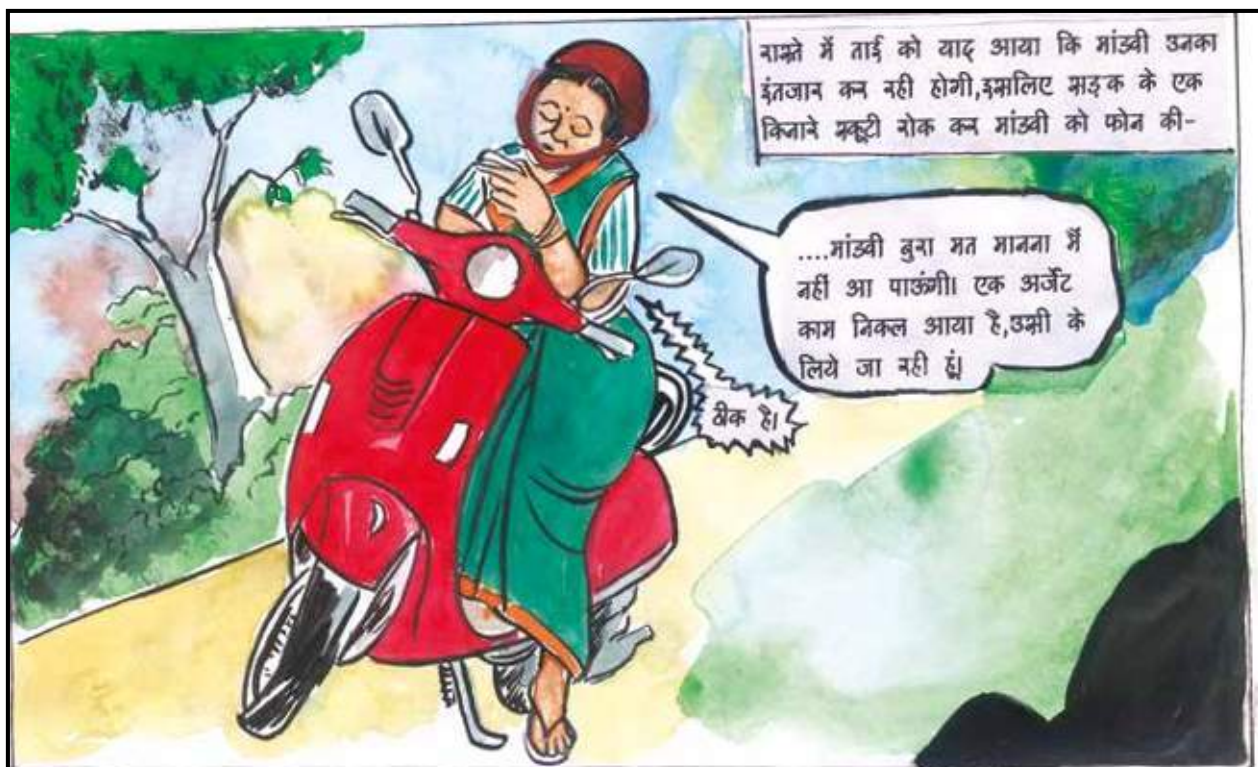 रास्ते में ताई को याद आया कि मांडवी उनका
इंतजार कर रही होगी,इसलिए सड़क के एक
किनारे स्कूटी रोक कर मांडवी को फोन की-
....मांडवी बुरा मत मानना मैं
नहीं आ पाऊंगी। एक अर्जेंट
काम निकल आया है,उसी के
लिये जा रही हूं।
ठीक है।